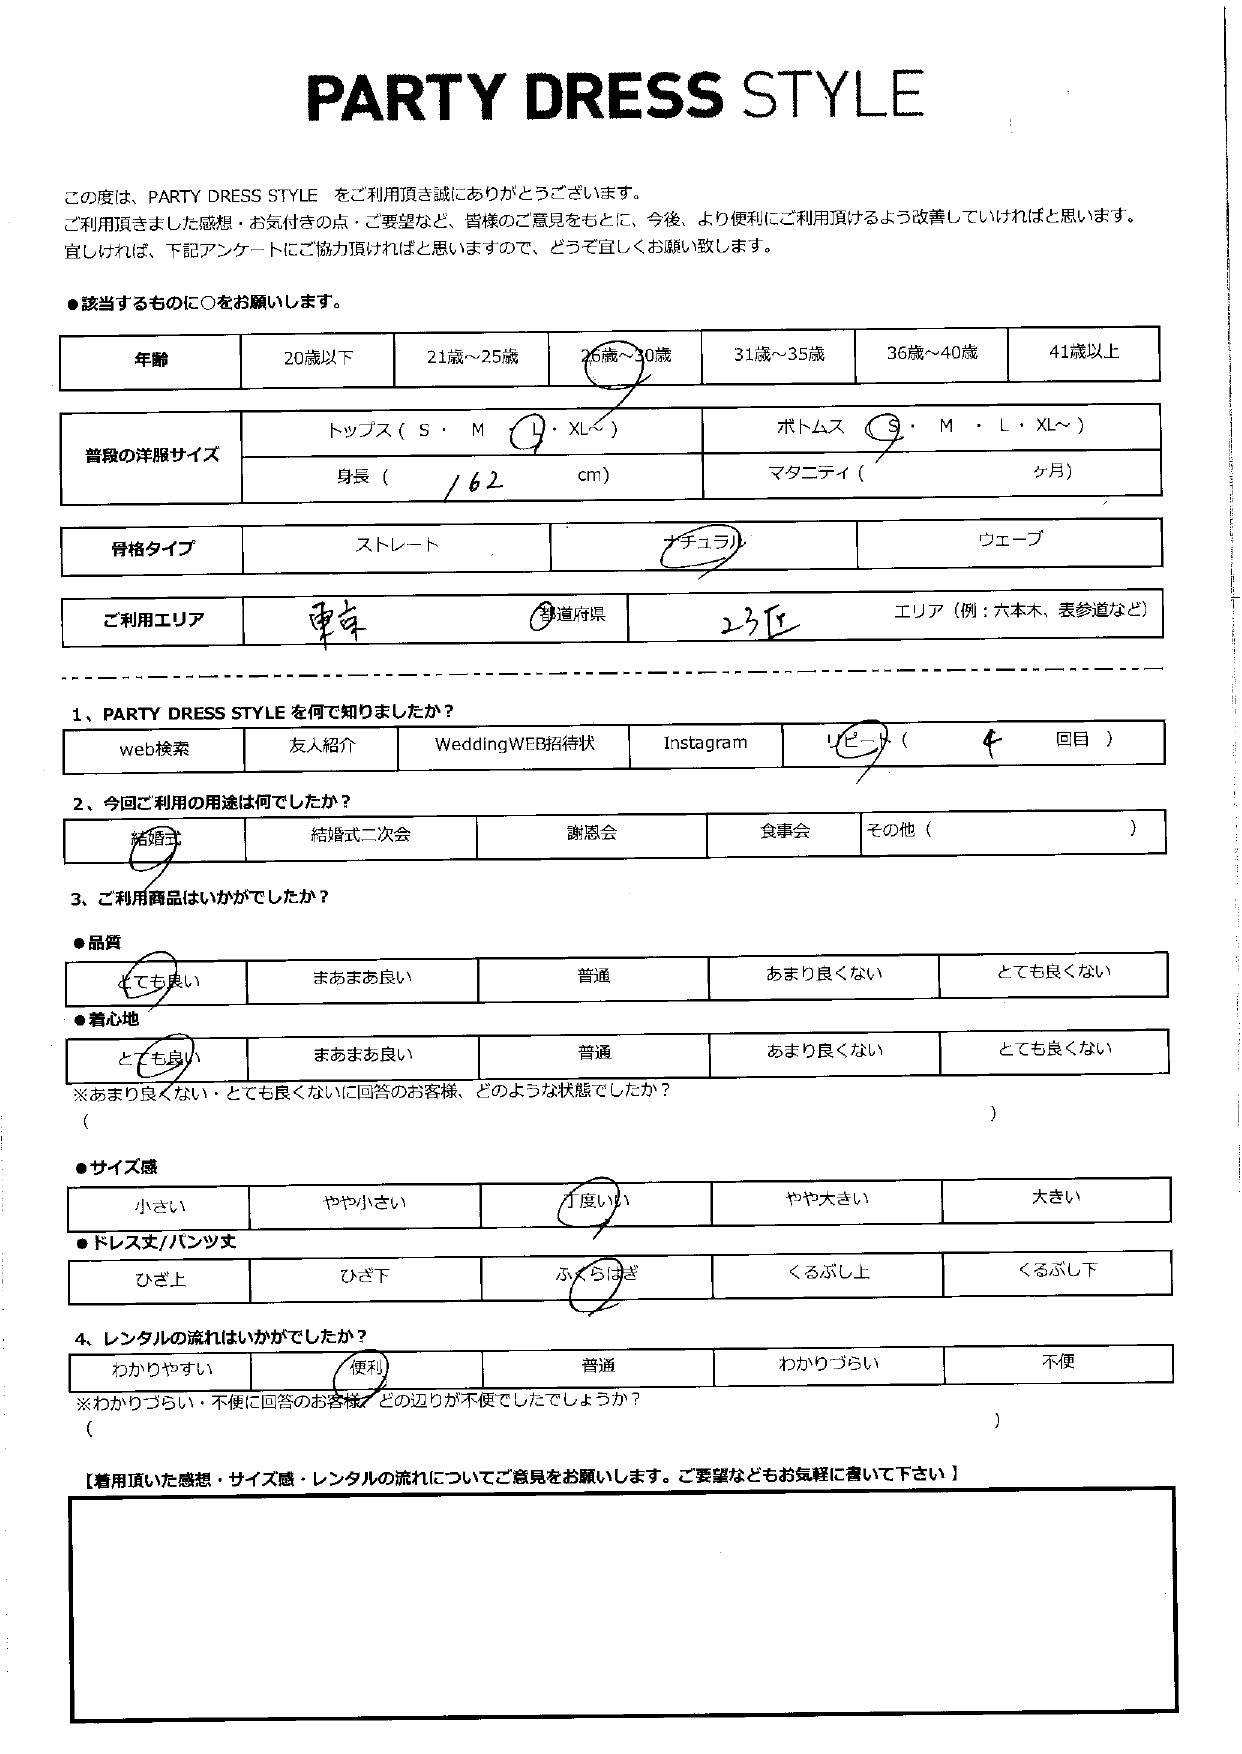 PARTY DRESS STYLE
この度は、PARTY DRESS STYLE をご利用頂き誠にありがとうございます。
ご利用頂きました感想・お気付きの点・ご要望など、皆様のご意見をもとに、今後、より便利にご利用頂けるよう改善していければと思います。
宜しければ、下記アンケートにご協力頂ければと思いますので、どうぞ宜しくお願い致します。
●該当するものに〇をお願いします。
年齢 20歳以下 21歳～25歳 26歳～30歳 31歳～35歳 36歳～40歳 41歳以上
普段の洋服サイズ
トップス ( S ・ M ・ L ・ XL～ ) ボトムス ( S ・ M ・ L ・ XL～ )
身長 ( 162 cm) マタニティ ( ヶ月)
骨格タイプ ストレート ナチュラル ウェーブ
ご利用エリア 東京 都道府県 23区 エリア (例：六本木、表参道など)
1、PARTY DRESS STYLE を何で知りましたか？
web検索 友人紹介 WeddingWEB招待状 Instagram リピート ( 4 回目 )
2、今回ご利用の用途は何でしたか？
結婚式 結婚式二次会 謝恩会 食事会 その他 ( )
3、ご利用商品はいかがでしたか？
●品質
とても良い まあまあ良い 普通 あまり良くない とても良くない
●着心地
とても良い まあまあ良い 普通 あまり良くない とても良くない
※あまり良くない・とても良くないに回答のお客様、どのような状態でしたか？
( )
●サイズ感
小さい やや小さい 丁度いい やや大きい 大きい
●ドレス丈/パンツ丈
ひざ上 ひざ下 ふくらはぎ くるぶし上 くるぶし下
4、レンタルの流れはいかがでしたか？
わかりやすい 便利 普通 わかりづらい 不便
※わかりづらい・不便に回答のお客様、どの辺りが不便でしたでしょうか？
( )
【着用頂いた感想・サイズ感・レンタルの流れについてご意見をお願いします。ご要望などもお気軽に書いて下さい 】